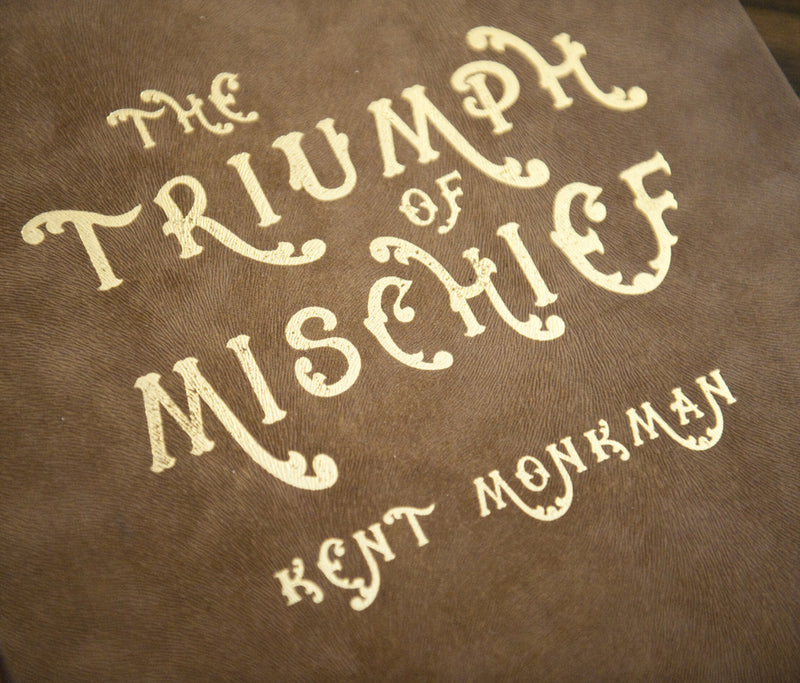 THE
TRIUMPH
OF
MISCHIEF
KENT MONKMAN